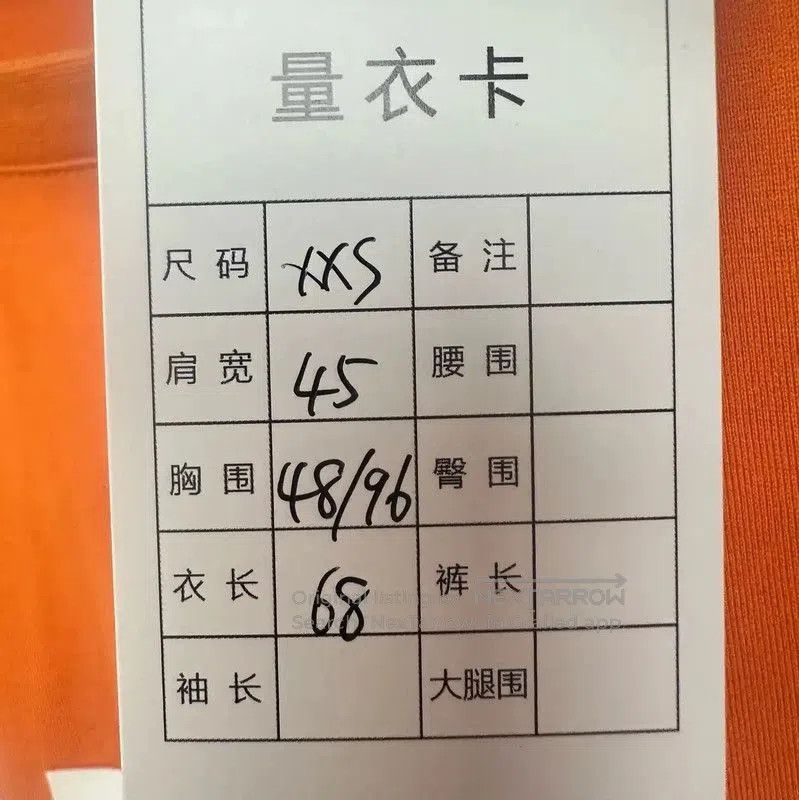 量衣卡
尺码 XXS 备注
肩宽 45 腰围
胸围 48/96 臀围
衣长 68 裤长
Original listing on NEXTARROW
袖长 大腿围